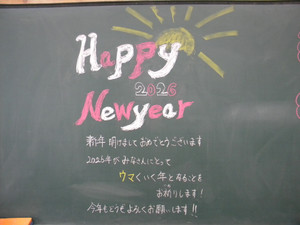 Happy
2026
New year
新年 明けましておめでとうございます
2026年がみなさんにとって
ウマくいく年となることを
お祈りします!
今年もどうぞよろしくお願いします!!